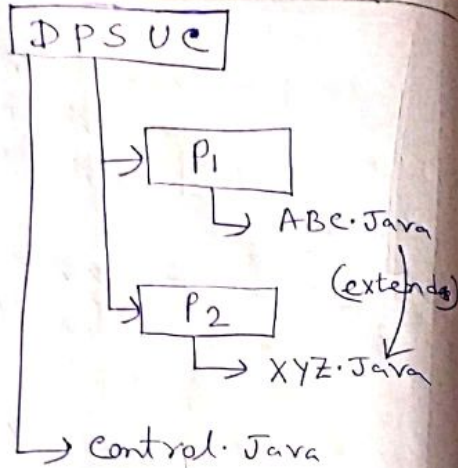 DPSUC
P1
ABC.Java
(extends)
P2
XYZ.Java
Control.Java